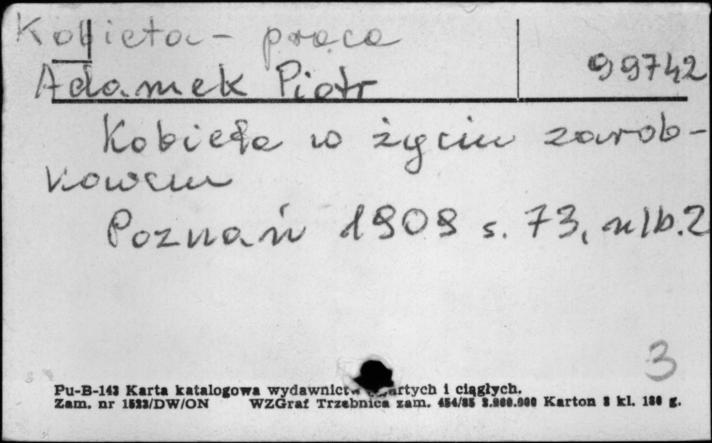 Kobieta - praca
Adamek Piotr 99742
Kobieta w życiu zarob-
kowem
Poznań 1909 s. 73, nlb. 2
3
Pu-B-143 Karta katalogowa wydawnictw zwartych i ciągłych.
Zam. nr 1523/DW/ON WZGraf Trzebnica zam. 454/85 Karton 3 kl. 180 g.